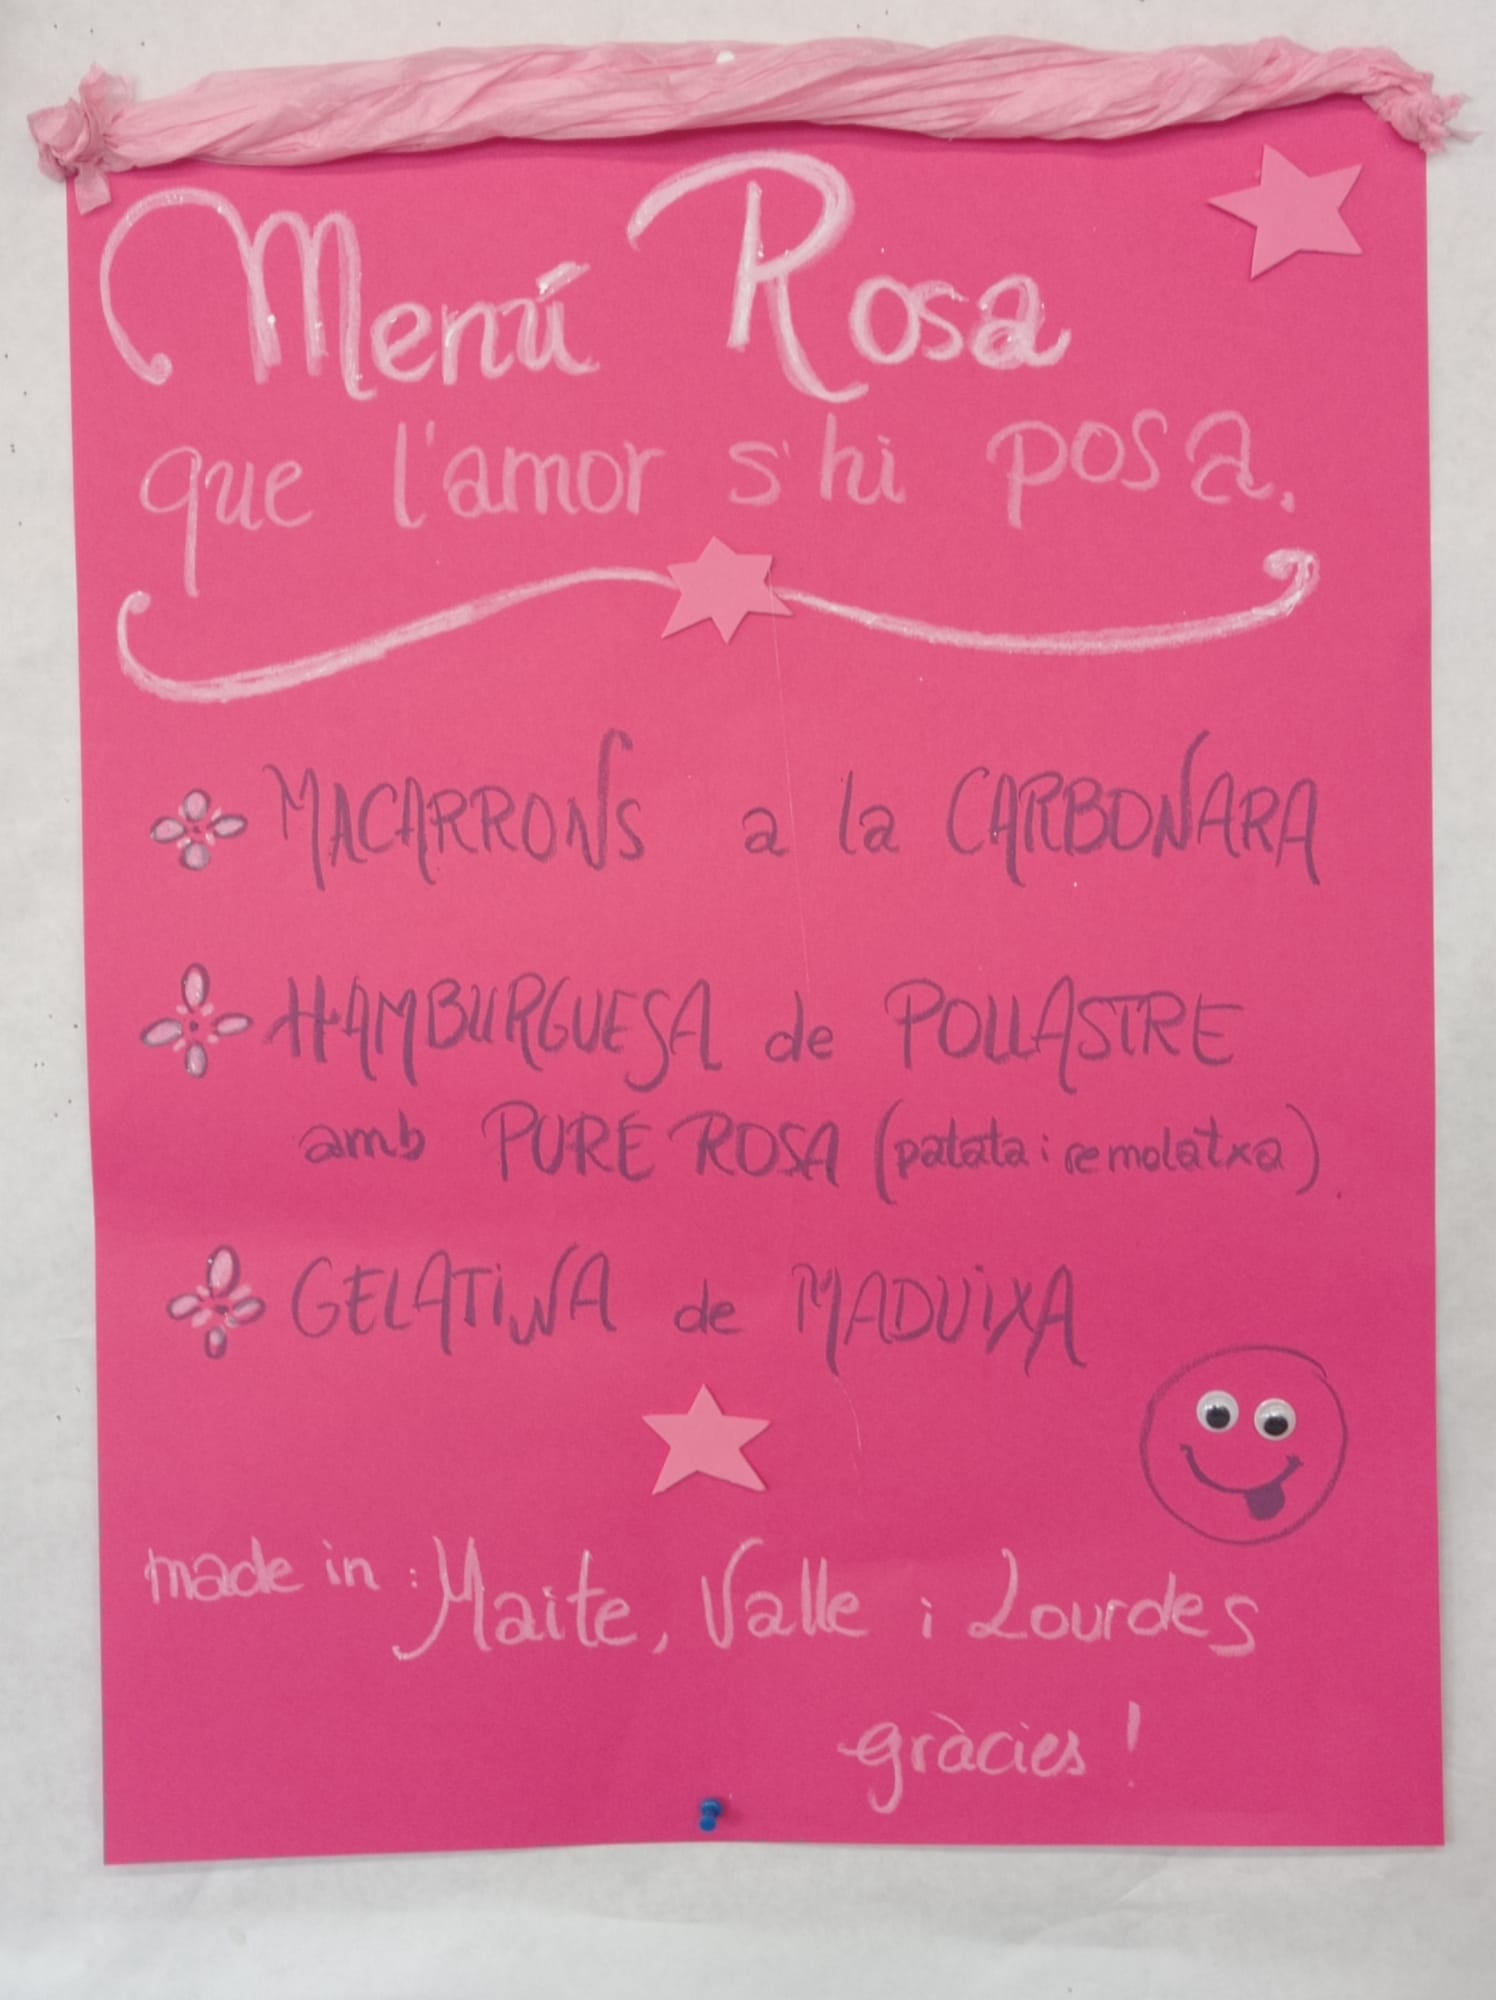 Menú Rosa
que l'amor s'hi posa.
MACARRONS a la CARBONARA
HAMBURGUESA de POLLASTRE
amb PURÉ ROSA (patata i remolatxa)
GELATINA de MADUIXA
made in: Maite, Valle i Lourdes
gràcies!